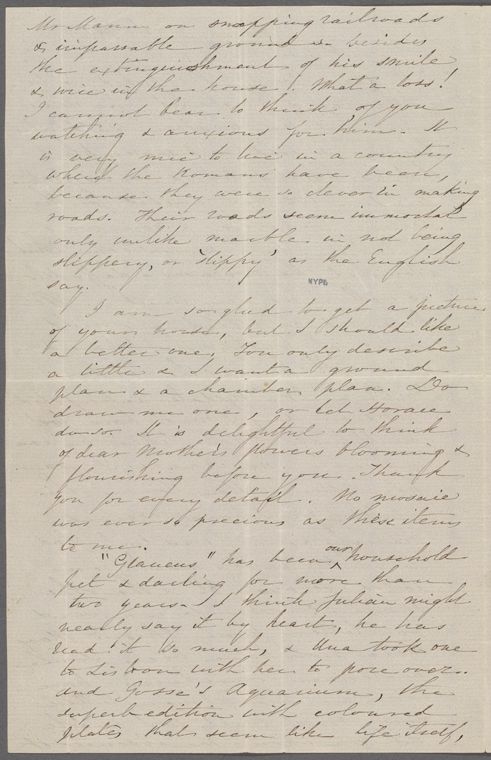 Mr Mann on snapping railroads
& impassable grounds - besides
the extinguishment of his smile
& voice in the house! What a loss!
I cannot bear to think of you
watching & anxious for him. It
is very nice to live in a country
where the Romans have been,
because they were so clever in making
roads. Their roads seem immortal
only unlike marble in not being
slippery, or 'slippy' as the English
say.
NYPL
I am so glad to get a picture
of your house, but I should like
a better one. You only describe
a little & I want a ground
plan & a chamber plan. Do
draw me one, or let Horace
do so. It is delightful to think
of dear Mother's powers blooming &
flourishing before you. Thank
you for every detail. No mosaic
was ever so precious as these items
to me.
"Glaucus" has been our household
pet & darling for more than
two years - I think Julian might
nearly say it by heart, he has
read it so much, & Una took one
to Lisbon with her to pore over.
And Gosse's Aquarium, the
superb edition with coloured
plates that seem like life itself,